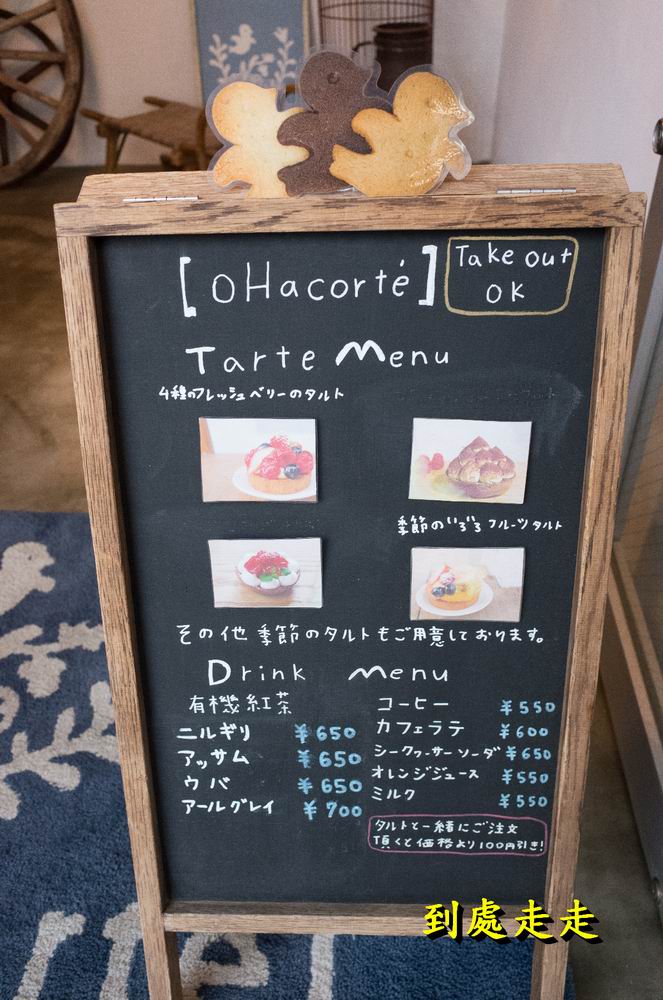 [oHacorté]
Take out
OK
Tarte Menu
4種のフレッシュベリーのタルト
季節のいろいろフルーツタルト
その他 季節のタルトもご用意しております。
Drink Menu
有機紅茶
ニルギリ ¥650
アッサム ¥650
ウバ ¥650
アールグレイ ¥700
コーヒー ¥550
カフェラテ ¥600
シークヮーサーソーダ ¥650
オレンジジュース ¥550
ミルク ¥550
タルトと一緒にご注文
頂くと価格より100円引き!
到處走走